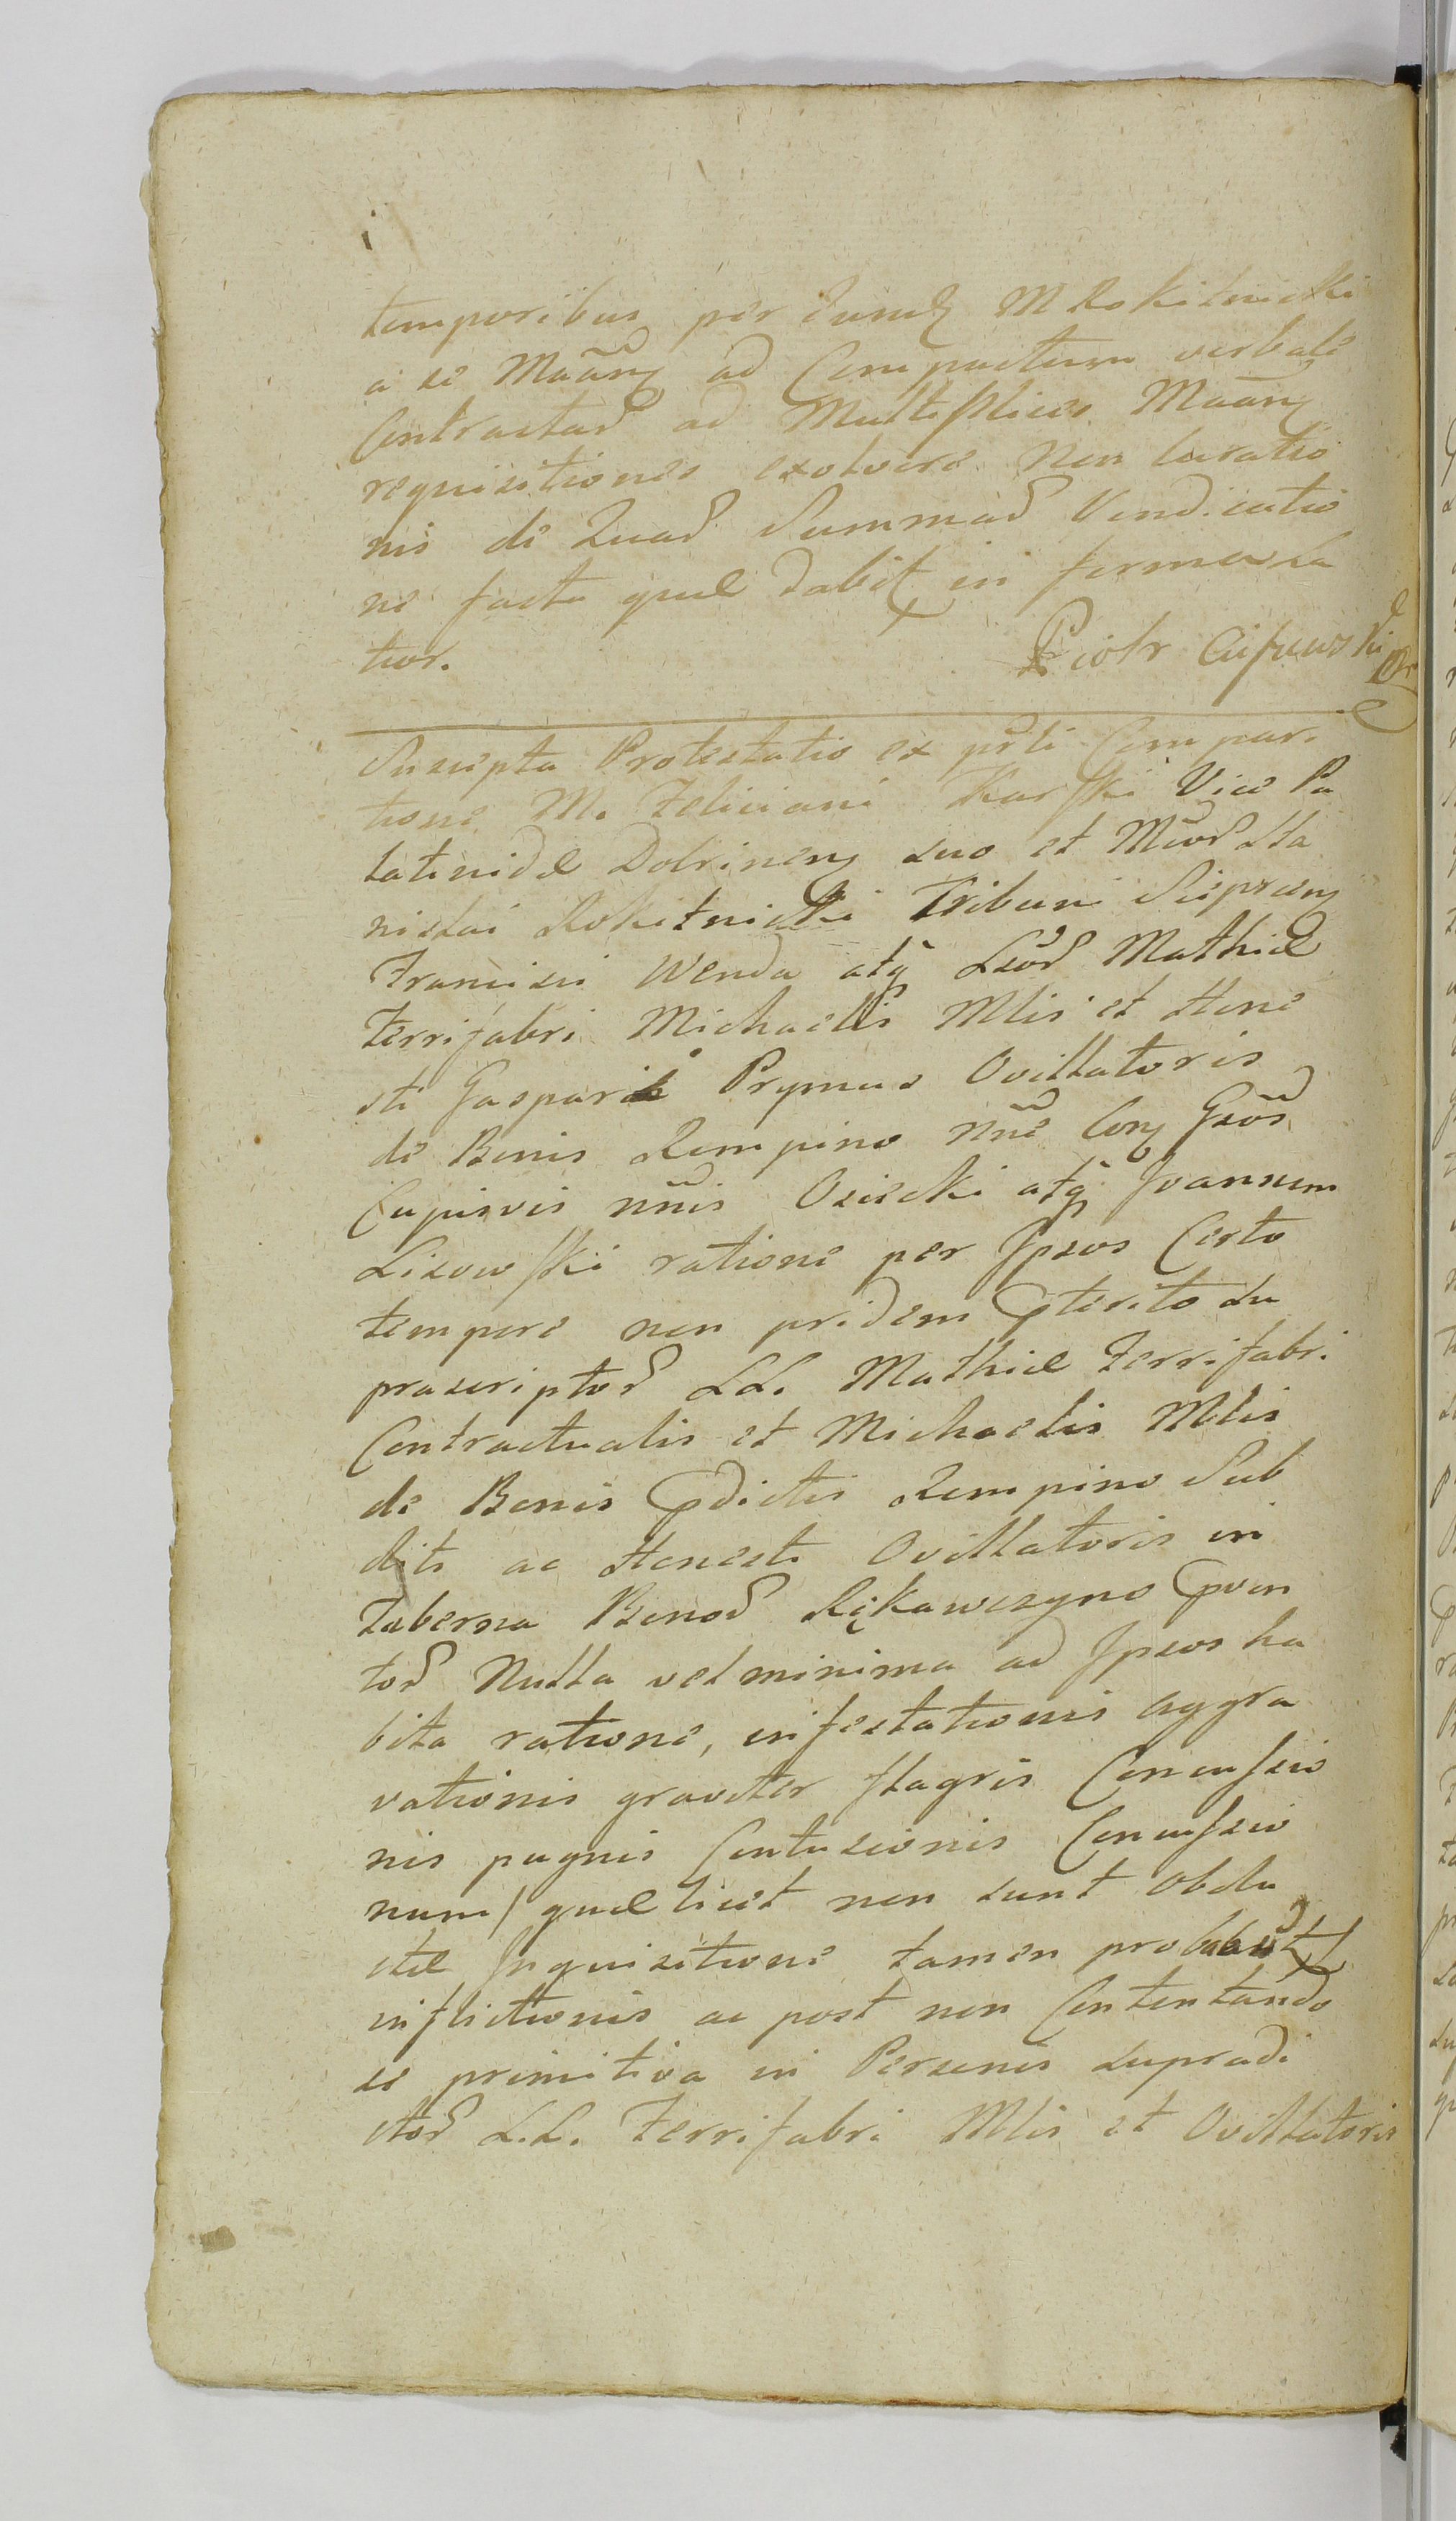 temporibus per Eund Rokitnicki
a se ad Compactum verbale
Contractad ad Multiplices
requisitiones exolvere Non Curatio
nis de Quad Summad Vindicatio
ne facta quæ dabit in forma La
tior.
Piotr
Suscepta Protestatio ex prli Compari
tione M. Feliciani Karski Vice Pa
latinidæ Dobrinen suo et Sta
nislai Rokitnicki Tribuni Sieprcen
Francisci Wenda atq Mathiæ
Ferrifabri Michaelis Mlis et Hone
sti Gasparis Prymus Ovillatoris
de Bonis Rempino nne Con Gsos
Cujusvis nnis Osiecki atq Joannem
Lisowski ratione per Ipsos Certo
tempore non pridem pterito Su
prascriptor LL. Mathiæ Ferrifabri
Contractualis et Michaelis Mlis
de Bonis pdictis Rempino Sub
diti ac Honesti Ovillatoris in
Taberna Bonor Rękawczyno pven
tor Nulla vel minima ad Ipsos ha
bita ratione, infestationis Aggra
vationis graviter flagris Concussio
nis pugnis Contusionis Concussio
num / quæ licet non sunt obdu
ctæ Inquisitione tamen probabut /
inflictionis ac post non Contentando
se primitiva in Personis supradi
ctor L.L. Ferrifabri Mlis et Ovillatoris